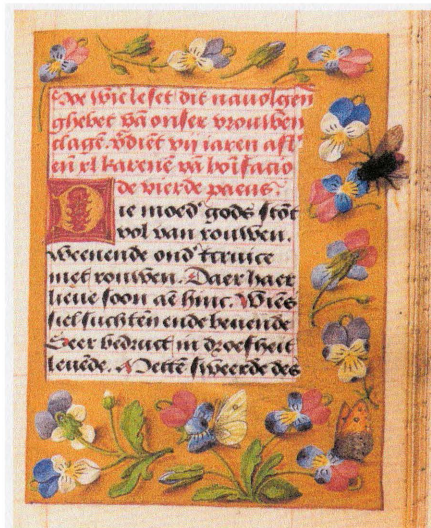 Soe wie leset dit navolgen
ghebet vā onser vrouwen
clage. vdiēt vij iaren afl
eñ xl karenē vā bonifacio
de vierde paeus.
Die moed' gods stōt
vol van rouwen.
Weenende ond' tcruice
met rouwen. Daer haer
lieue soon aē hinc. Wies
siel suchtēn ende beuende
Seer bedruct in droefheit
leuēde. Mettē sweerde des